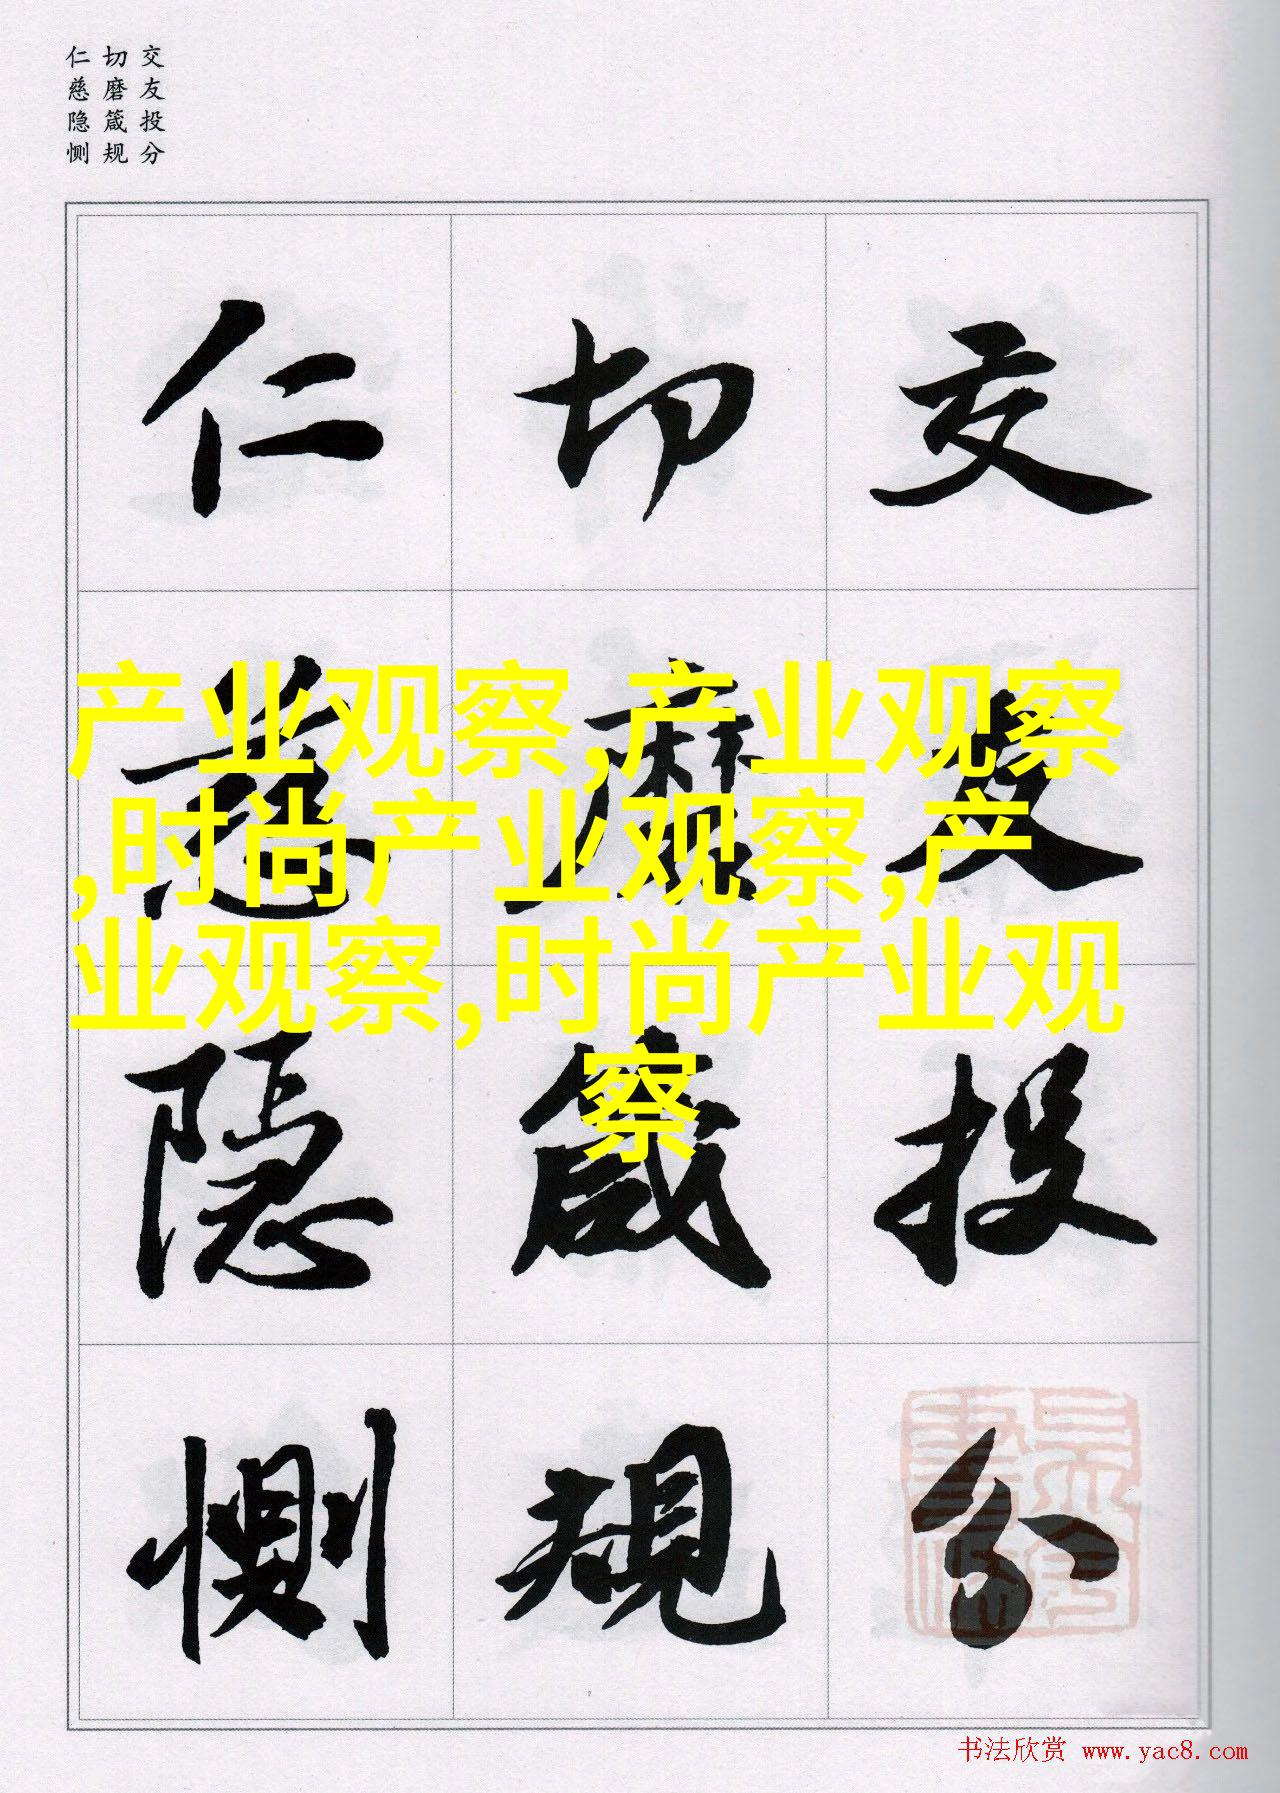 交友投分
切磨箴规
仁慈隐恻
交友投分
切磨箴規
仁慈隱惻
产业观察,产业观察
,时尚产业观察,产
业观察,时尚产业观
察
书法欣赏 www.yac8.com